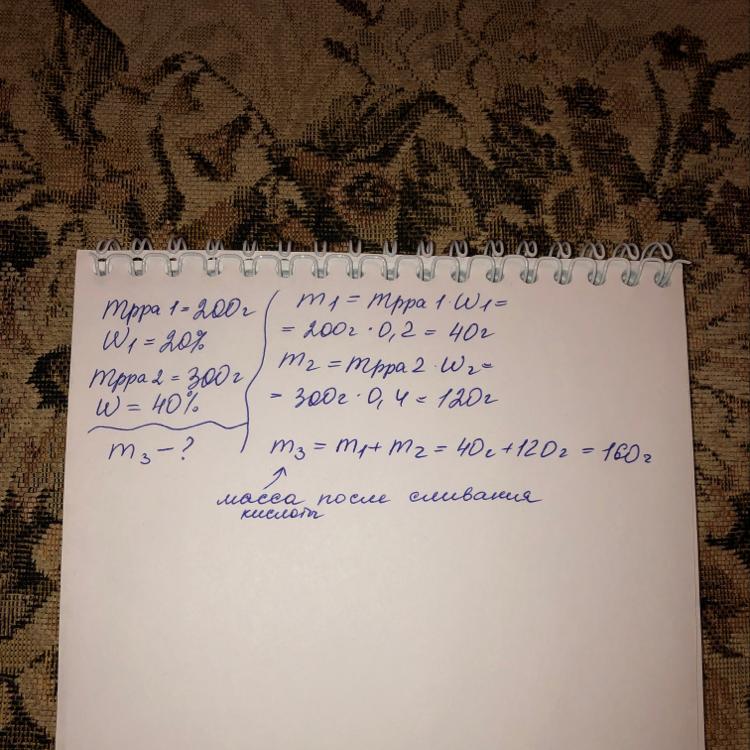 mрра 1 = 200г
W1 = 20%
mрра 2 = 300г
W = 40%
m3 – ?
m1 = mрра 1 · W1 =
= 200г · 0,2 = 40г
m2 = mрра 2 · W2 =
= 300г · 0,4 = 120г
m3 = m1 + m2 = 40г + 120г = 160г
масса после сливания
кислоты